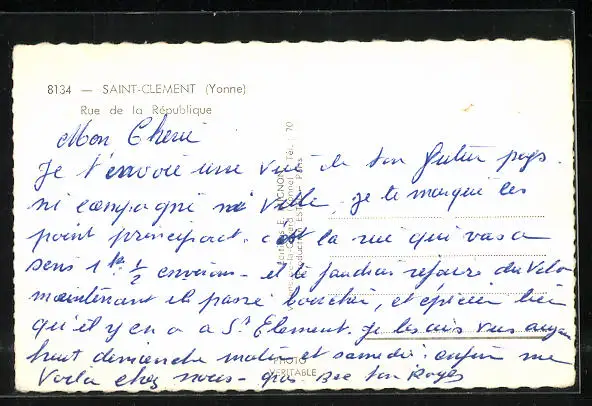 8134 — SAINT-CLEMENT (Yonne)
Rue de la République
Mon Cheri
Je t'envoie une vue de ton futur pays.
ni campagne ni ville, je te marque les
point principaux. c'est la rue qui vas a
sens 1 k. ½ environ - et le faudras refaire du vélo
maintenant il passe boucher, et épicier bien
qu'il y en a a St Clement. Je les ais vus
tout dimanche matin et samedi. enfin me
Voila chez nous - gros Bec ton
Tél. : 70
PHOTO
VERITABLE